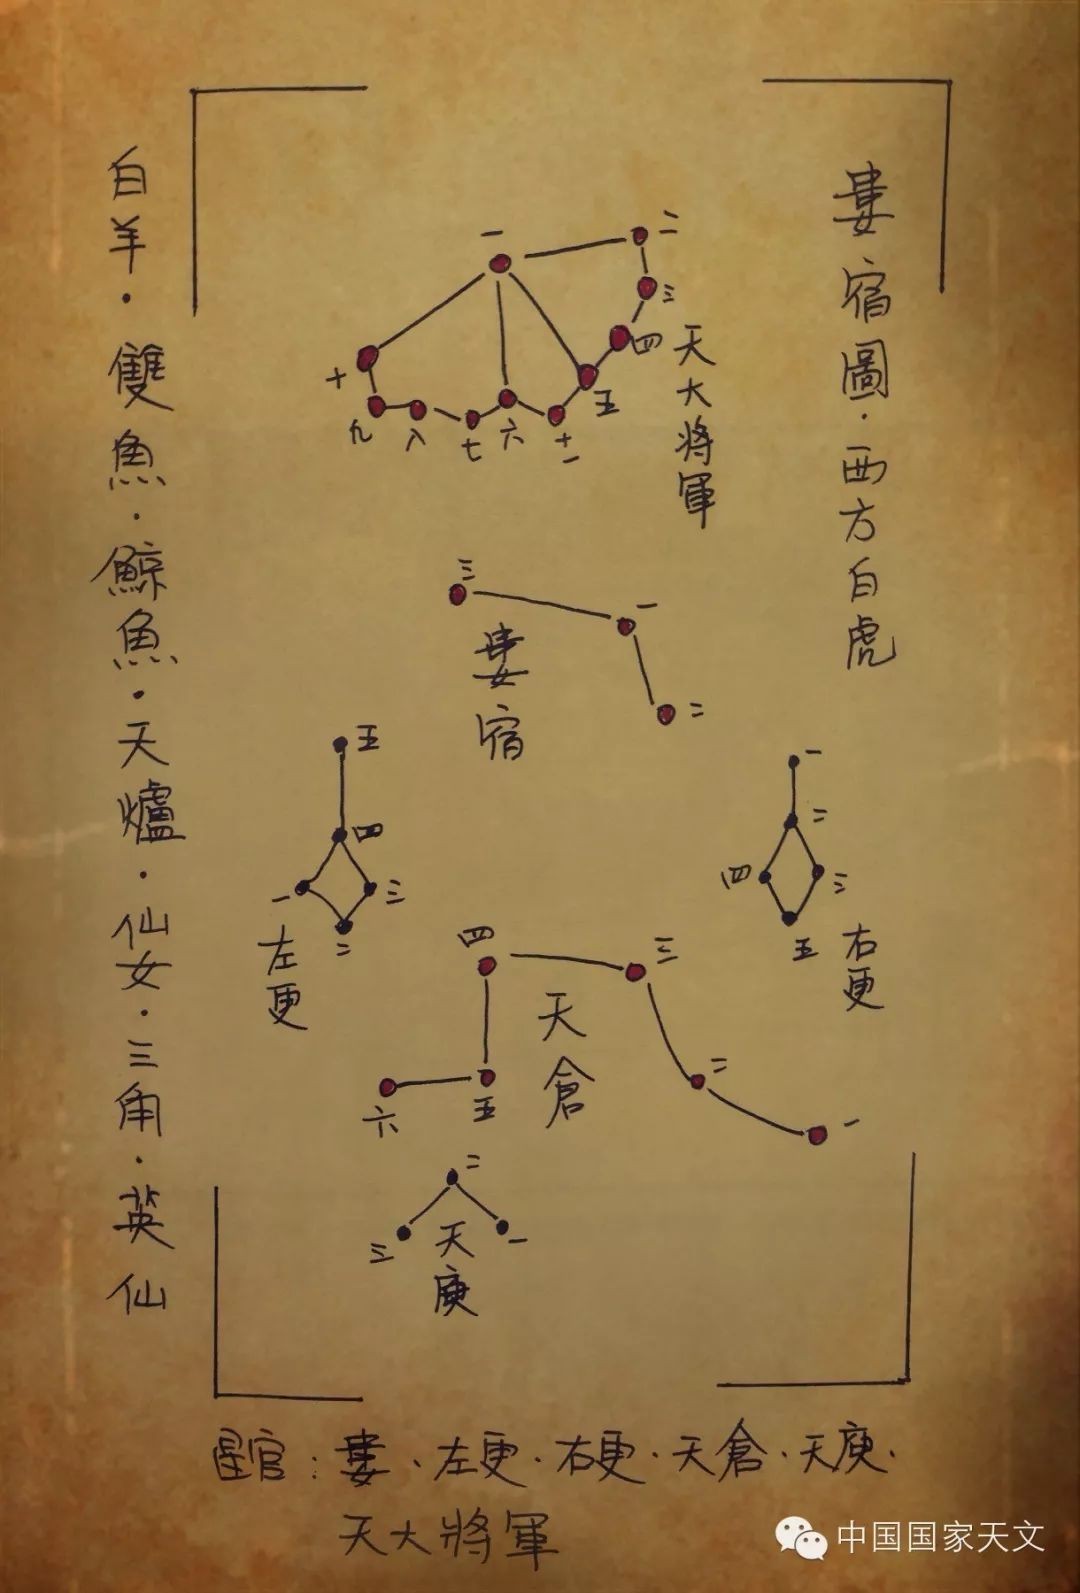 婁宿圖·西方白虎
白羊·雙魚·鯨魚·天爐·仙女·三角·英仙
一
二
三
四
五
十一
六
七
八
九
十
天大將軍
三
一
二
婁宿
五
四
一
三
二
左更
一
二
四
三
五
右更
四
三
二
一
五
六
天倉
二
三
一
天庾
星官:婁·左更·右更·天倉·天庾·
天大將軍
中国国家天文